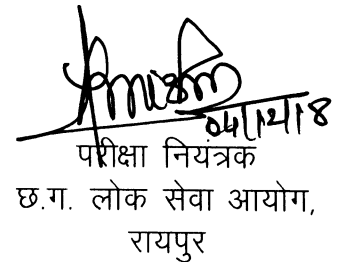 04/12/18
परीक्षा नियंत्रक
छ.ग. लोक सेवा आयोग,
रायपुर